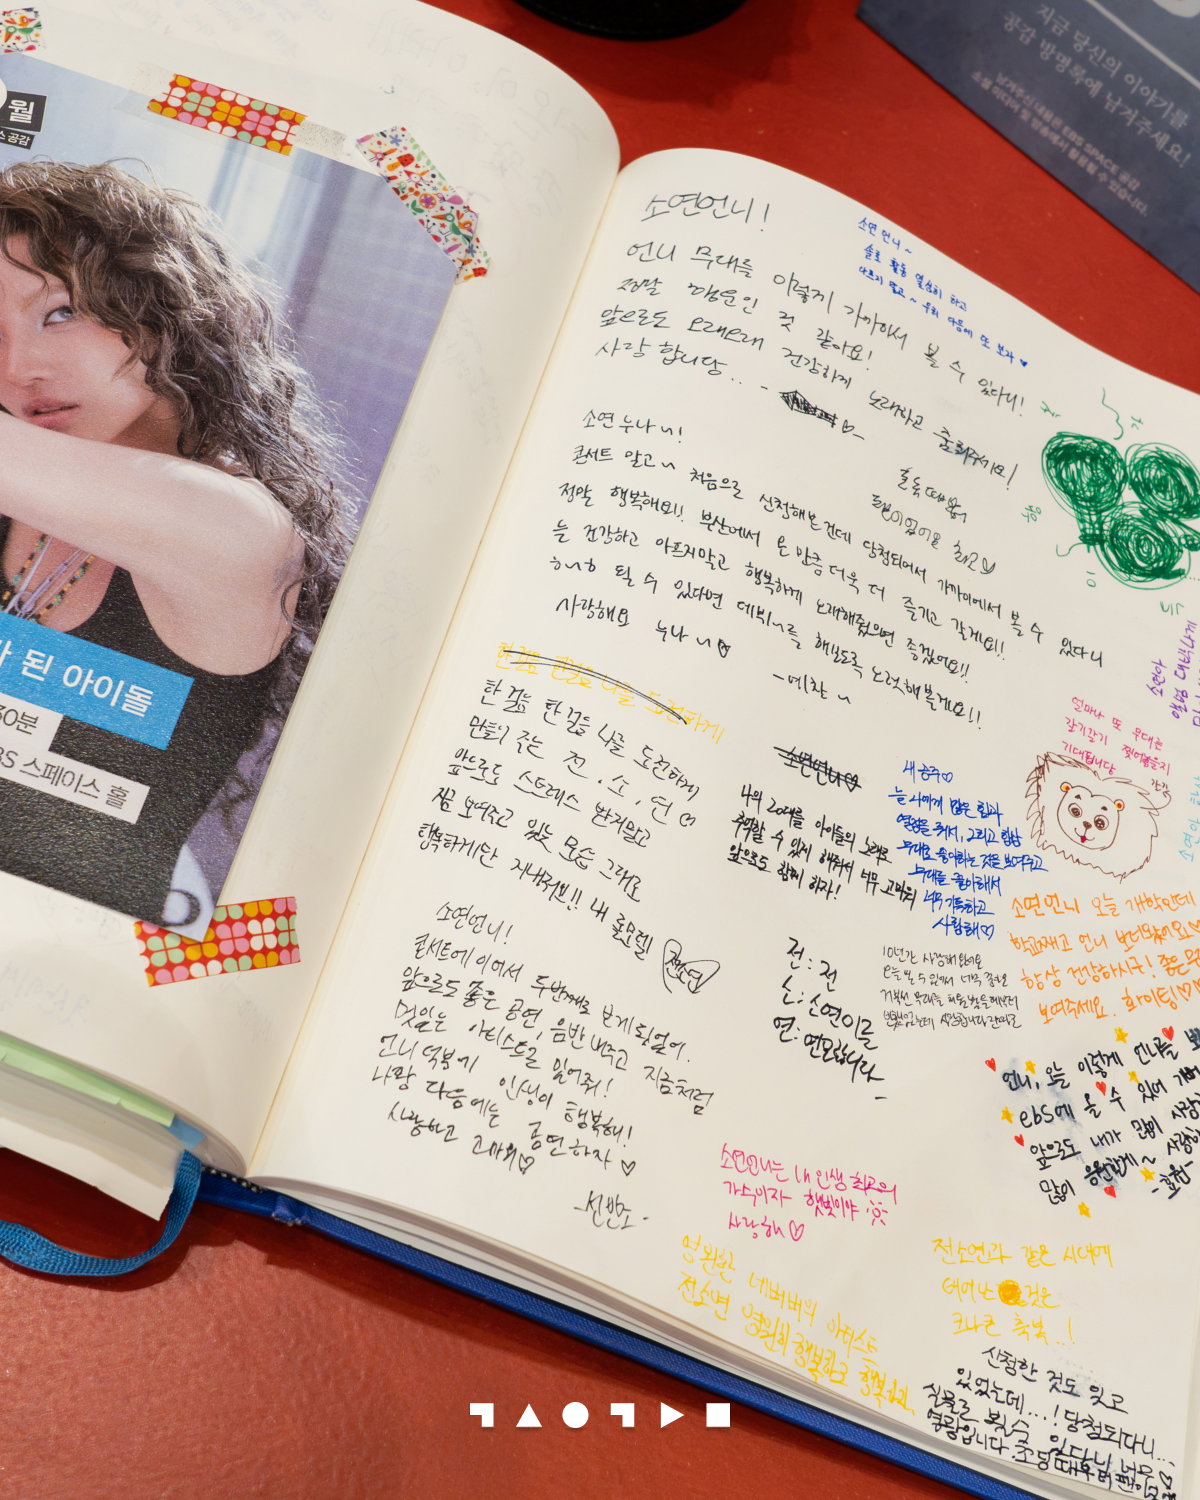 월
스 공감
가 된 아이돌
30분
BS 스페이스 홀
지금 당신의 이야기를
공감 방명록에 남겨주세요!
남겨주신 내용은 EBS SPACE 공감
소셜 미디어 및 방송에서 활용될 수 있습니다.
소연언니!
언니 무대를 이렇게 가까이서 볼 수 있다니!
정말 행운인 것 같아요!
앞으로도 오래오래 건강하게 노래하고 춤춰주세요!
사랑합니당...
소연 언니~
솔로 활동 열심히 하고
아프지 말고~ 우리 다음에 또 보자
소연 누나~!
콘서트 말고~ 처음으로 신청해본건데 당첨되어서 가까이에서 볼 수 있다니
정말 행복해요!! 부산에서 온 만큼 더욱 더 즐기고 갈게요!!
늘 건강하고 아프지말고 행복하게 노래해줬으면 좋겠어요!!
될 수 있다면 해보도록 노력해볼게요!!
사랑해요 누나~
한 걸음 한 걸음 나를 도전하게
만들어 주는 전, 소, 연
앞으로도 스트레스 받지말고
지금 보여주고 있는 모습 그대로
행복하게만 지내줘!! 내 롤모델! 전소연
나의 20대를 아이들의 노래로
추억할 수 있게 해줘서 너무 고마워
앞으로도 함께 하자!
내 공주
늘 나에게 많은 힘과
열정을 줘서, 그리고 항상
무대로 좋아하는 것을 보여주고
무대를 좋아해서
너무 기특하고
사랑해
얼마나 또 무대를
갈기갈기 찢어놓을지
기대됩니당
소연아
소연언니 오늘 개학인데
학교째고 언니 보러왔어요
항상 건강하시구! 좋은
보여주세요. 화이팅!
소연언니!
콘서트에 이어서 두번째로 보게되었어.
앞으로도 좋은 공연, 음반 내주고 지금처럼
멋있는 아티스트로 있어줘!
언니 덕분에 인생이 행복해!
나랑 다음에는 공연하자
사랑하고 고마워
전: 전
소: 소연이를
연: 연모합니다
언니, 오늘 이렇게 언니를
ebs에 올 수 있어
앞으로도 내가 많이 사랑하
많이 응원할게~ 사랑해
소연언니는 내 인생 최고의
가수이자 햇빛이야
사랑해
영원한 네버버의 아티스트
전소연 영원히 행복하고 행복해라
전소연과 같은 시대에
태어난 것은
크나큰 축복..!
신청한 것도 잊고
있었는데...! 당첨되다니...
실물로 볼 수 있다니 너무
영광입니다